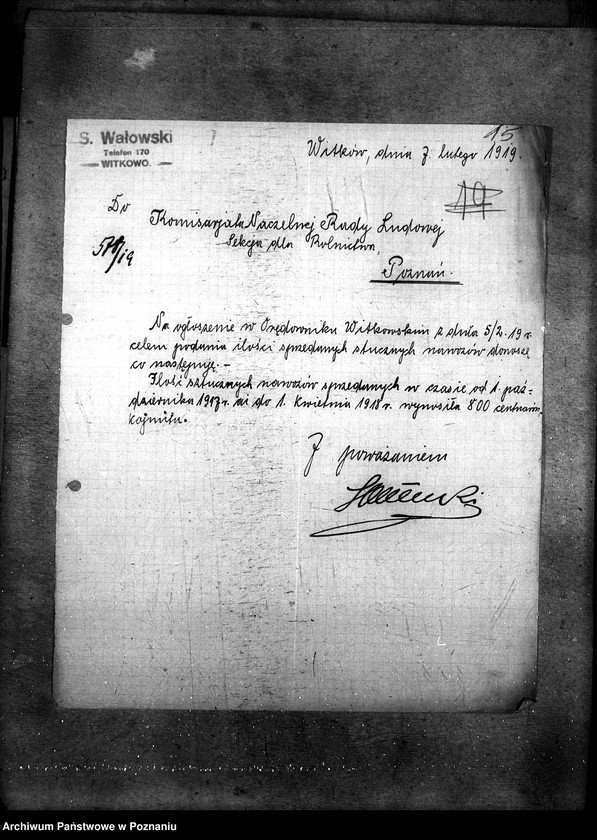 15
S. Wałowski
Telefon 170
WITKOWO.
Witkowo, dnia 7. lutego 1919.
19
Do
Komisarjatu Naczelnej Rady Ludowej
Sekcja dla Rolnictwa,
/19
Poznań.
Na ogłoszenie w Orędowniku Witkowskim z dnia 5/2. 19 r.
celem podania ilości sprzedanych stucznych nawozów donoszę
co następuję. -
Ilość sztucznych nawozów sprzedanych w czasie od 1. paź-
dziernika 1917 r. aż do 1. kwietnia 1918 r. wynosiła 800 centnarów
kajnitu.
Z poważaniem
SWałowski
Archiwum Państwowe w Poznaniu